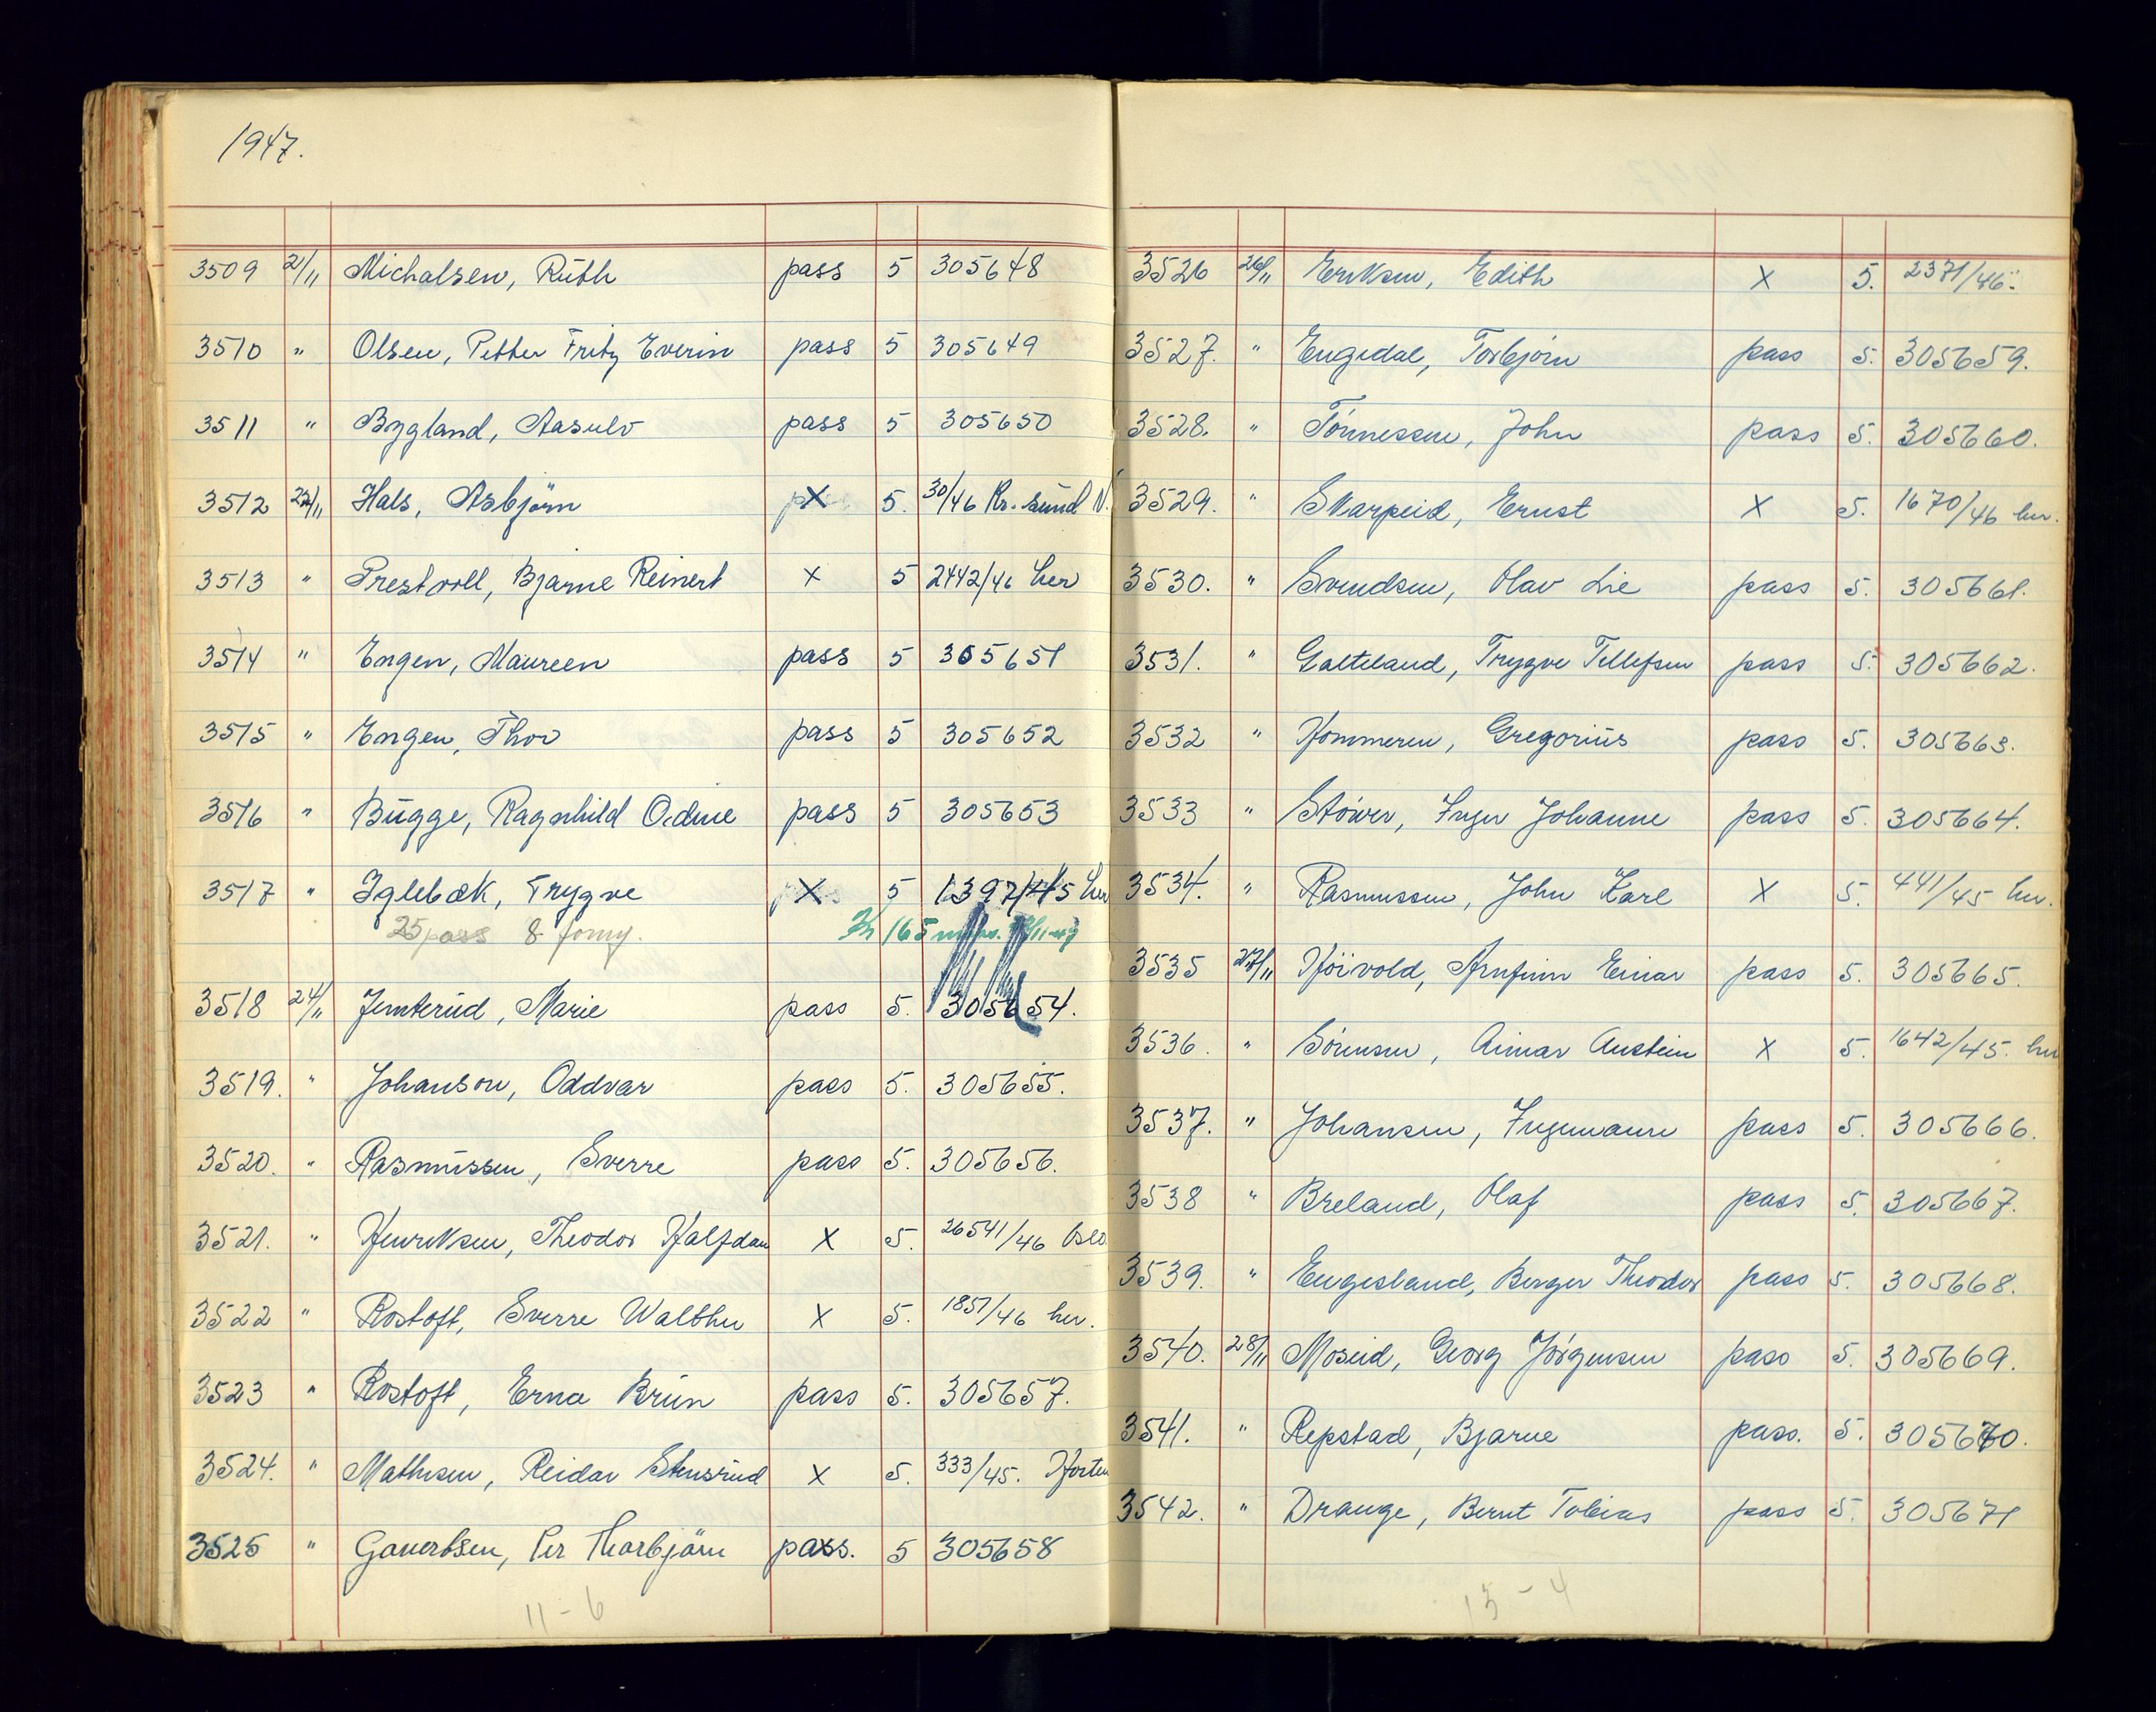 1947.
3509 21/11 Michalsen, Ruth pass 5 305648
3510 " Olsen, Petter Fritz Everin pass 5 305649
3511 " Bygland, Aasulv pass 5 305650
3512 22/11 Hals, Asbjörn X 5. 30/46 Kr. sund N.
3513 " Prestvoll, Bjarne Reinert X 5 2442/46 her
3514 " Engen, Maureen pass 5 305651
3515 " Engen, Thor pass 5 305652
3516 " Bugge, Ragnhild Odine pass 5 305653
3517 " Iglebæk, Trygve X 5 1397/45 her
25 pass 8 forny. Kr 165
3518 24/11 Jemterud, Marie pass 5. 305654.
3519. " Johanson, Oddvar pass 5. 305655.
3520. " Rasmussen, Sverre pass 5. 305656.
3521. " Henriksen, Theodor Halfdan X 5. 26541/46 Oslo
3522 " Rostoft, Sverre Walther X 5. 1857/46 her.
3523 " Rostoft, Erna Brun pass 5. 305657.
3524. " Mathisen, Reidar Stensrud X 5. 333/45. Horten
3525 " Gauertsen, Per Thorbjörn pass. 5 305658
11-6
3526 26/11 Eriksen, Edith X 5. 2371/46.
3527. " Engedal, Torbjörn pass 5. 305659.
3528. " Tönnessen, John pass 5. 305660.
3529. " Skarpeid, Ernst X 5. 1670/46 her.
3530. " Svendsen, Olav Lie pass 5. 305661.
3531. " Galteland, Trygve Tellefsen pass 5. 305662.
3532 " Hommeren, Gregorius pass 5. 305663.
3533 " Stöwer, Inger Johanne pass 5. 305664.
3534. " Rasmussen, John Karl X 5. 441/45 her.
3535 27/11 Höivold, Arnfinn Einar pass 5. 305665.
3536. " Sörensen, Aimar Austein X 5. 1642/45. her
3537. " Johansen, Ingemann pass 5. 305666.
3538 " Breland, Olaf pass 5. 305667.
3539. " Engesland, Berger Theodor pass 5. 305668.
3540. 28/11 Moseid, Georg Jörgensen pass 5. 305669.
3541. " Repstad, Bjarne pass. 5. 305670.
3542. " Drange, Bernt Tobias pass 5. 305671
13-4